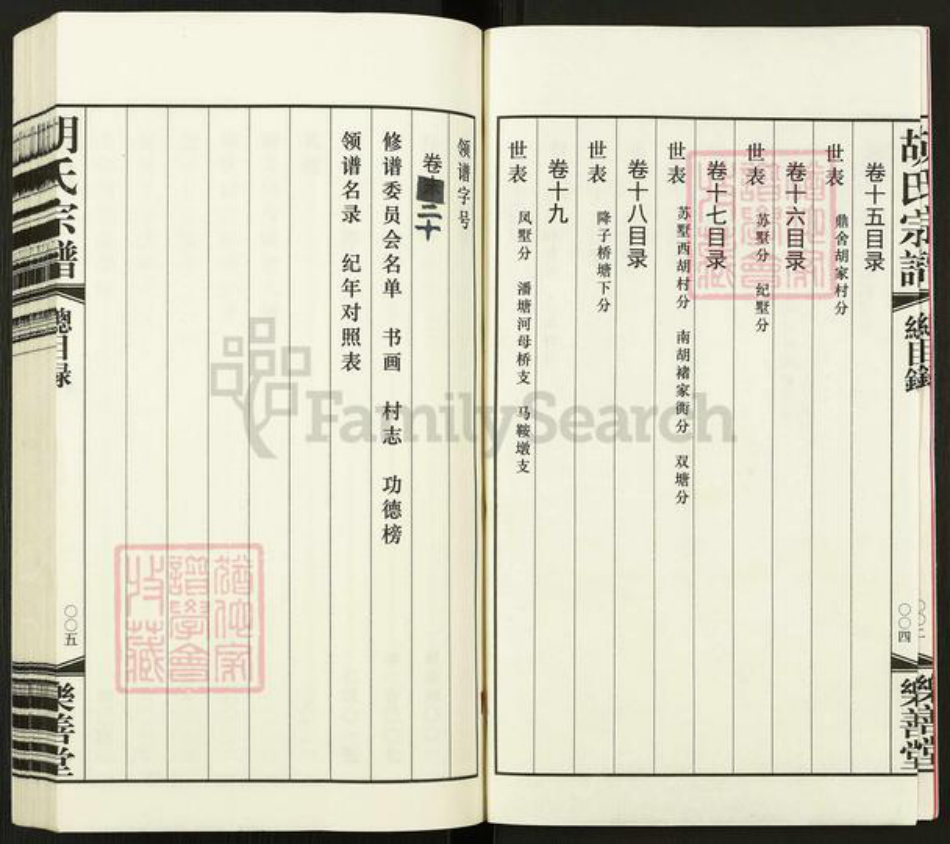 胡氏宗譜
總目錄
〇〇四
樂善堂
卷十五目录
世表
鼎舍胡家村分
卷十六目录
世表
苏墅分 纪墅分
卷十七目录
世表
苏墅西胡村分 南胡褚家衖分 双塘分
卷十八目录
世表
降子桥塘下分
卷十九
世表
凤墅分 潘塘河母桥支 马鞍墩支
领谱字号
卷二十
修谱委员会名单 书画 村志 功德榜
领谱名录 纪年对照表
胡氏宗譜
總目録
〇〇五
樂善堂
FamilySearch